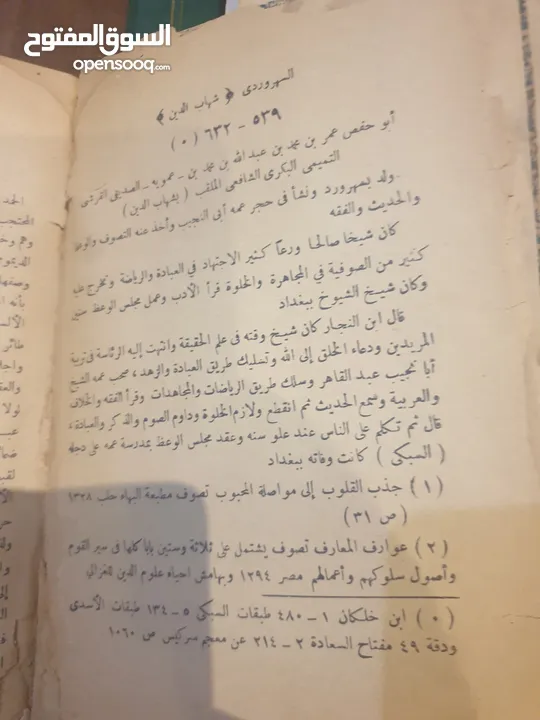 السوق المفتوح
opensooq.com
السهروردى ﴿ شهاب الدين ﴾
٥٣٩ – ٦٣٢ ( ٠ )
أبو حفص عمر بن محمد بن عبد الله بن محمد بن - عمويه - الصديقى القرشى
التيمى البكرى الشافعى الملقب ( بشهاب الدين )
ولد بسهرورد ونشأ فى حجر عمه أبى النجيب وأخذ عنه التصوف والوعظ
والحديث والفقه
كان شيخا صالحا ورعا كثير الاجتهاد فى العبادة والرياضة وتخرج عليه
كثير من الصوفية فى المجاهرة والخلوة قرأ الأدب وعمل مجلس الوعظ سنين
وكان شيخ الشيوخ ببغداد
قال ابن النجار كان شيخ وقته فى علم الحقيقة وانتهت إليه الرئاسة فى تربية
المريدين ودعاء الخلق إلى الله وتسليك طريق العبادة والزهد ، صحب عمه الشيخ
أبا نجيب عبد القاهر وسلك طريق الرياضات والمجاهدات وقرأ الفقه والخلاف
والعربية وسمع الحديث ثم انقطع ولازم الخلوة وداوم الصوم والذكر والعبادة ،
قال ثم تكلم على الناس عند علو سنه وعقد مجلس الوعظ بمدرسة عمه على دجلة
( السبكى ) كانت وفاته ببغداد
( ١ ) جذب القلوب إلى مواصلة المحبوب تصوف مطبعة البهاء حلب ١٣٢٨
( ص ٣١ )
( ٢ ) عوارف المعارف تصوف يشتمل على ثلاثة وستين بابا كلها فى سير القوم
وأصول سلوكهم وأعمالهم مصر ١٢٩٤ وبهامش احياء علوم الدين للغزالى
( ٠ ) ابن خلكان ١ – ٤٨٠ طبقات السبكى ٥ – ١٣٤ طبقات الأسدى
ودقة ٤٩ مفتاح السعادة ٢ – ٢١٤ عن معجم سركيس ص ١٠٦٠